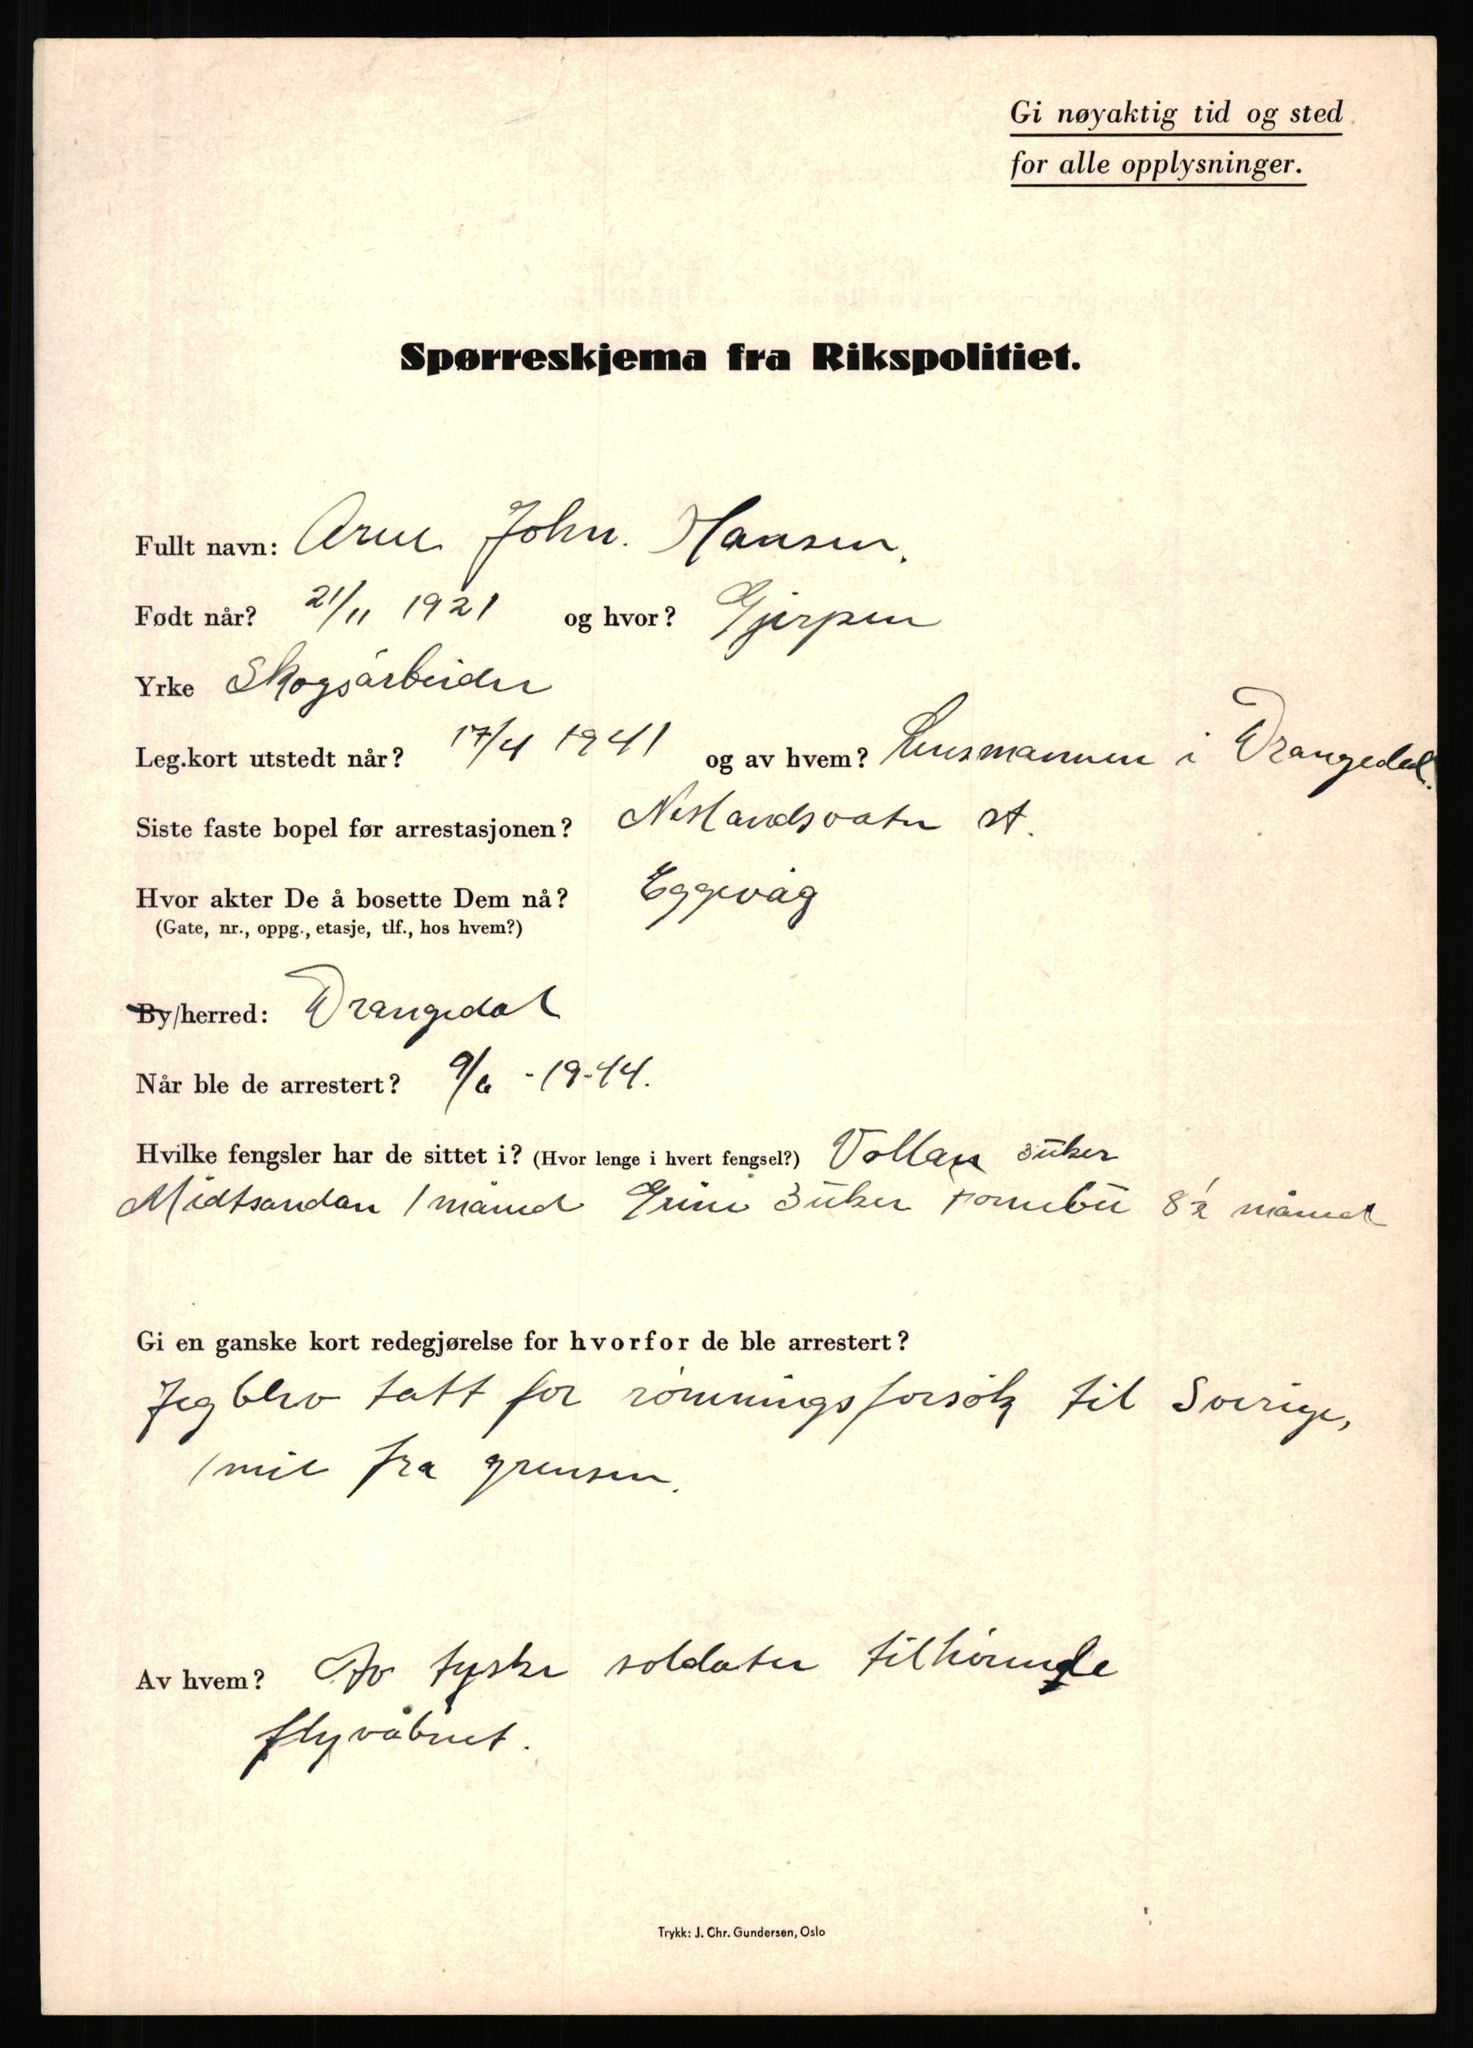 Gi nøyaktig tid og sted
for alle opplysninger.
Spørreskjema fra Rikspolitiet.
Fullt navn: Arne John. Hansen.
Født når? 21/11 1921 og hvor? Gjerpen
Yrke Skogsarbeider
Leg.kort utstedt når? 17/4 1941 og av hvem? Lensmannen i Drangedal.
Siste faste bopel før arrestasjonen? Neslandsvatn st.
Hvor akter De å bosette Dem nå? Eggevåg
(Gate, nr., oppg., etasje, tlf., hos hvem?)
By/herred: Drangedal
Når ble de arrestert? 9/6 - 19-44.
Hvilke fengsler har de sittet i? (Hvor lenge i hvert fengsel?) Vollan 3 uker
Midtsandan 1 måned Grini 3 uker Fornebu 8½ måned
Gi en ganske kort redegjørelse for hvorfor de ble arrestert?
Jeg blev tatt for rømningsforsøk til Sverige,
1 mil fra grensen.
Av hvem? Av tyske soldater tilhørende
flyvåbnet.
Trykk: J. Chr. Gundersen, Oslo